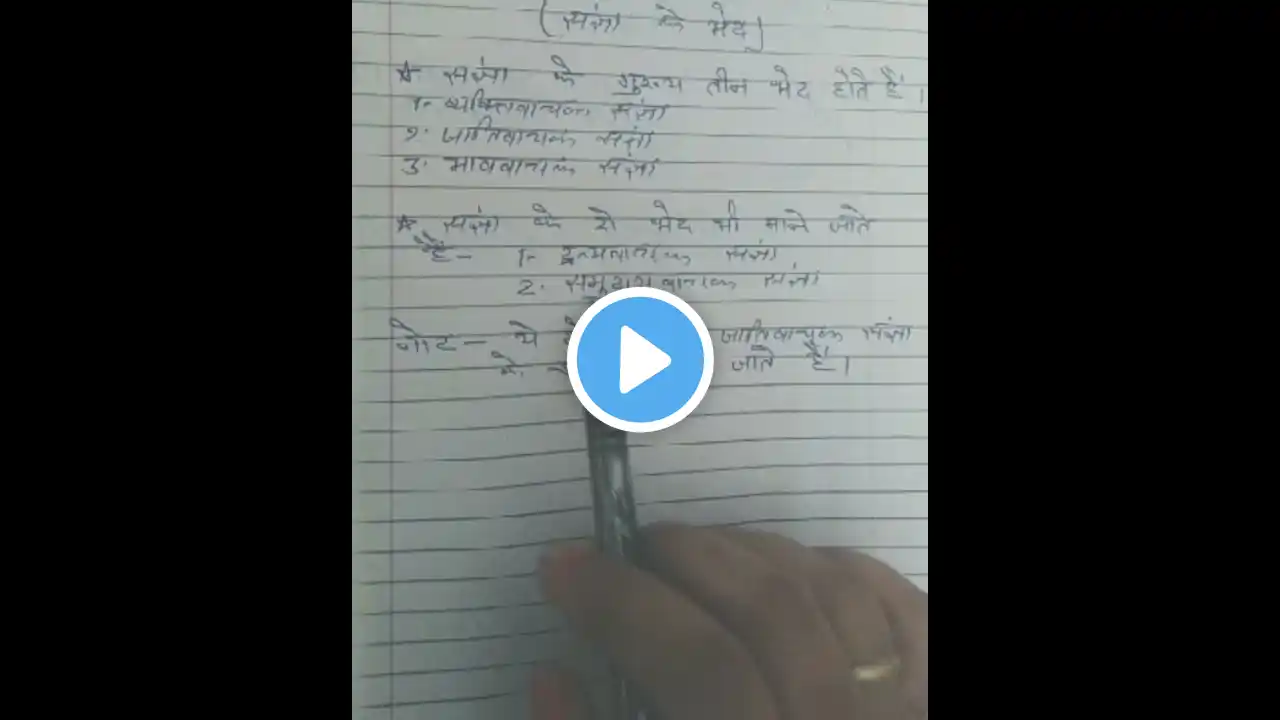 (संज्ञा के भेद)
* संज्ञा के मुख्य तीन भेद होते हैं।
1. व्यक्तिवाचक संज्ञा
2. जातिवाचक संज्ञा
3. भाववाचक संज्ञा
* संज्ञा के दो भेद भी माने जाते
हैं- 1. द्रव्यवाचक संज्ञा
2. समुदायवाचक संज्ञा
नोट- ये जातिवाचक संज्ञा
के जाते हैं।